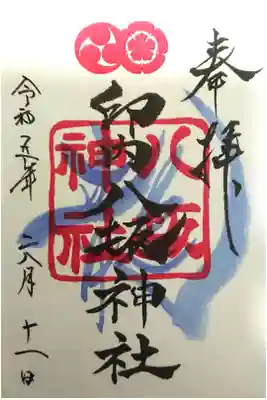 奉拝
印内八坂神社
八坂神社
令和五年 月 十一日